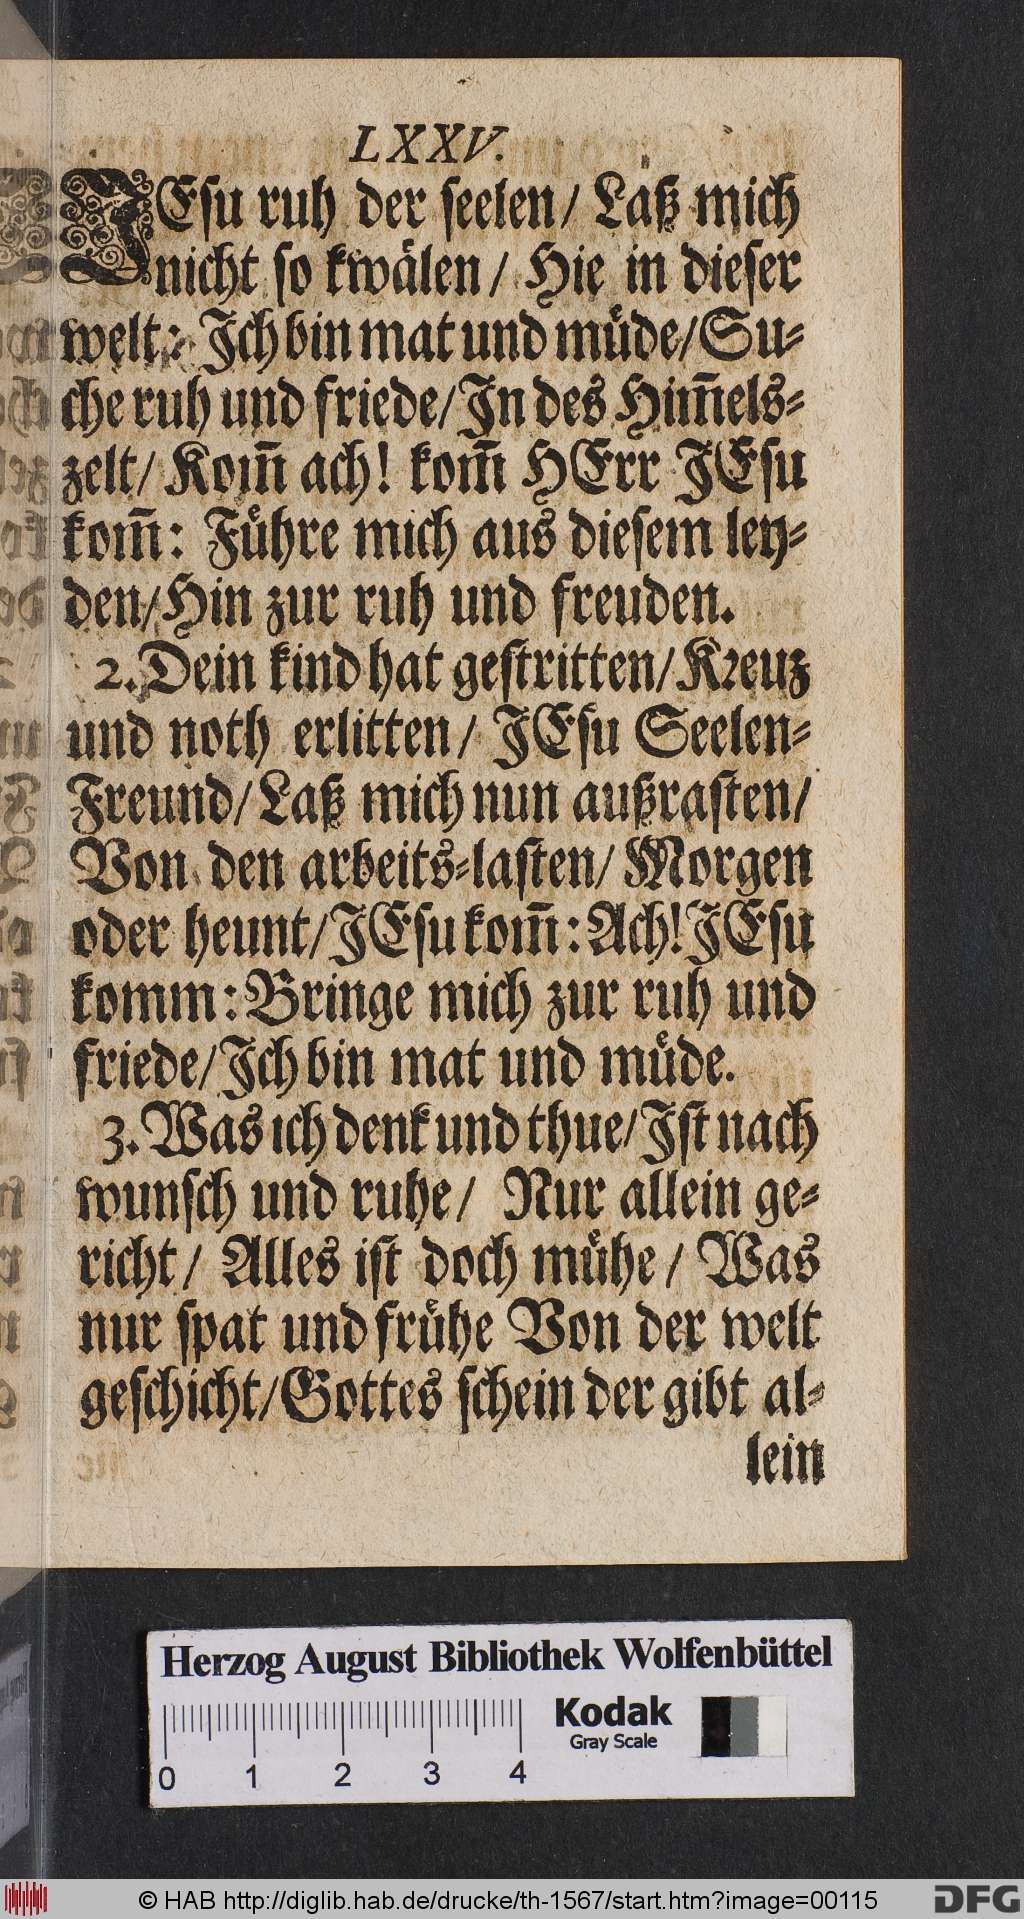 LXXV.
JEsu ruh der seelen/ Laß mich
nicht so kwälen/ Hie in dieser
welt: Ich bin mat und müde/Su-
che ruh und friede/In des Him̃els-
zelt/ Kom̃ ach! kom̃ HErr JEsu
kom̃: Führe mich aus diesem ley-
den/Hin zur ruh und freuden.
2. Dein kind hat gestritten/Kreuz
und noth erlitten/ JEsu Seelen-
Freund/Laß mich nun außrasten/
Von den arbeits-lasten/ Morgen
oder heunt/JEsu kom̃: Ach! JEsu
komm: Bringe mich zur ruh und
friede/Ich bin mat und müde.
3. Was ich denk und thue/Ist nach
wunsch und ruhe/ Nur allein ge-
richt/ Alles ist doch mühe/ Was
nur spat und frühe Von der welt
geschicht/Gottes schein der gibt al-
lein
Herzog August Bibliothek Wolfenbüttel
Kodak
Gray Scale
0 1 2 3 4
© HAB http://diglib.hab.de/drucke/th-1567/start.htm?image=00115
DFG